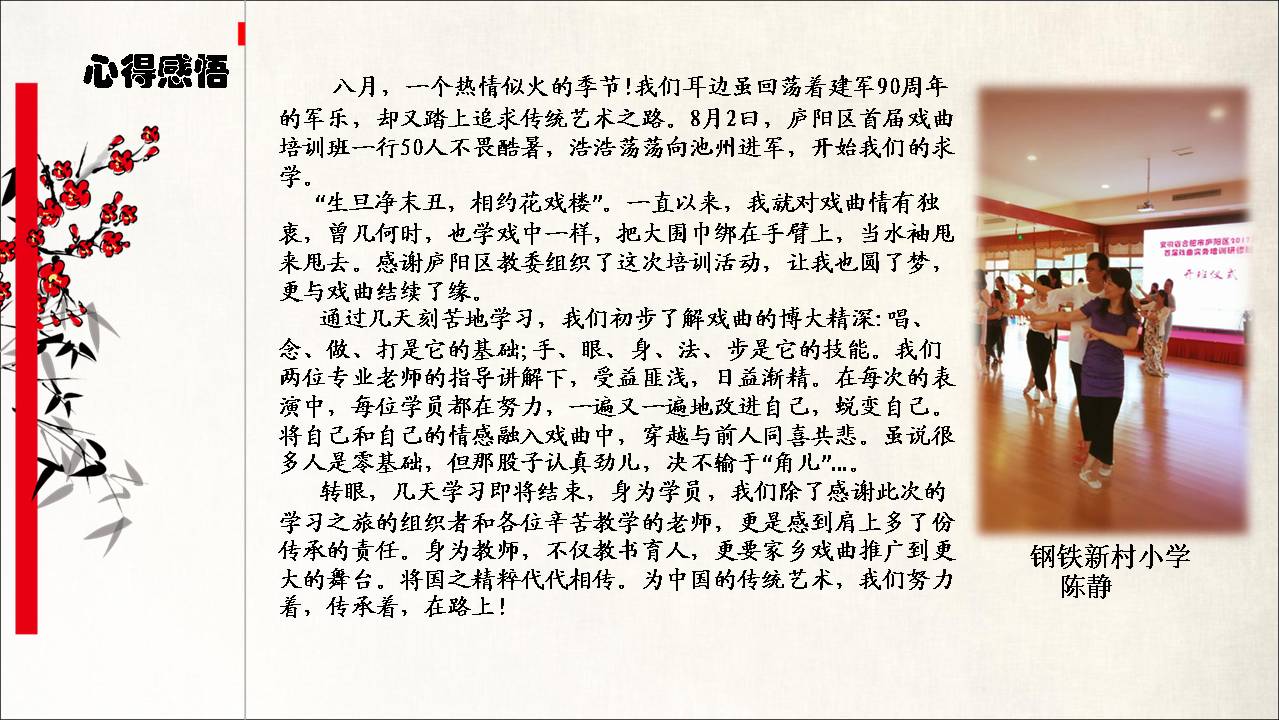 心得感悟
八月，一个热情似火的季节！我们耳边虽回荡着建军90周年
的军乐，却又踏上追求传统艺术之路。8月2日，庐阳区首届戏曲
培训班一行50人不畏酷暑，浩浩荡荡向池州进军，开始我们的求
学。
“生旦净末丑，相约花戏楼”。一直以来，我就对戏曲情有独
衷，曾几何时，也学戏中一样，把大围巾绑在手臂上，当水袖甩
来甩去。感谢庐阳区教委组织了这次培训活动，让我也圆了梦，
更与戏曲结续了缘。
通过几天刻苦地学习，我们初步了解戏曲的博大精深：唱、
念、做、打是它的基础；手、眼、身、法、步是它的技能。我们
两位专业老师的指导讲解下，受益匪浅，日益渐精。在每次的表
演中，每位学员都在努力，一遍又一遍地改进自己，蜕变自己。
将自己和自己的情感融入戏曲中，穿越与前人同喜共悲。虽说很
多人是零基础，但那股子认真劲儿，决不输于“角儿”...。
转眼，几天学习即将结束，身为学员，我们除了感谢此次的
学习之旅的组织者和各位辛苦教学的老师，更是感到肩上多了份
传承的责任。身为教师，不仅教书育人，更要家乡戏曲推广到更
大的舞台。将国之精粹代代相传。为中国的传统艺术，我们努力
着，传承着，在路上！
安徽省合肥市庐阳区2017
首届戏曲实务培训研修班
开班仪式
钢铁新村小学
陈静